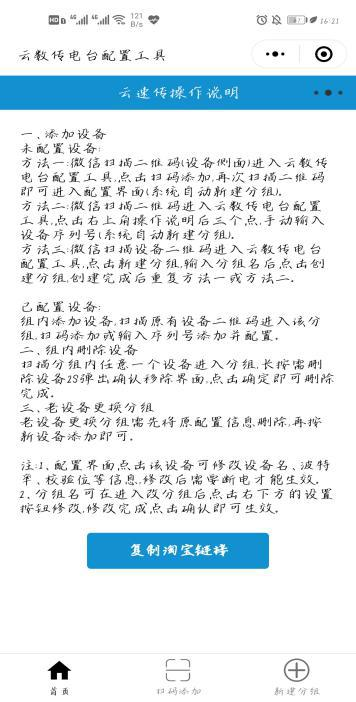 HD 4G 4G 121 B/s 16:21
云数传电台配置工具
云速传操作说明
一、添加设备
未配置设备:
方法一:微信扫描二维码(设备侧面)进入云数传
电台配置工具,点击扫码添加,再次扫描二维码
即可进入配置界面(系统自动新建分组)。
方法二:微信扫描二维码进入云数传电台配置
工具,点击右上角操作说明后三个点,手动输入
设备序列号(系统自动新建分组)。
方法三:微信扫描设备二维码进入云数传电台
配置工具,点击新建分组,输入分组名后,点击创
建分组,创建完成后重复方法一或方法二。
已配置设备:
组内添加设备,扫描原有设备二维码进入该分
组,扫码添加或输入序列号添加并配置。
二、组内删除设备
扫描分组内任意一个设备进入分组,长按需删
除设备2S弹出确认移除界面,点击确定即可删除
完成。
三、老设备更换分组
老设备更换分组需先将原配置信息删除,再按
新设备添加即可。
注:1、配置界面点击该设备可修改设备名、波特
率、校验位等信息,修改后需要断电才能生效。
2、分组名可在进入改分组后,点击右下方的设置
按钮修改,修改完成点击确认即可生效。
复制淘宝链接
首页 扫码添加 新建分组